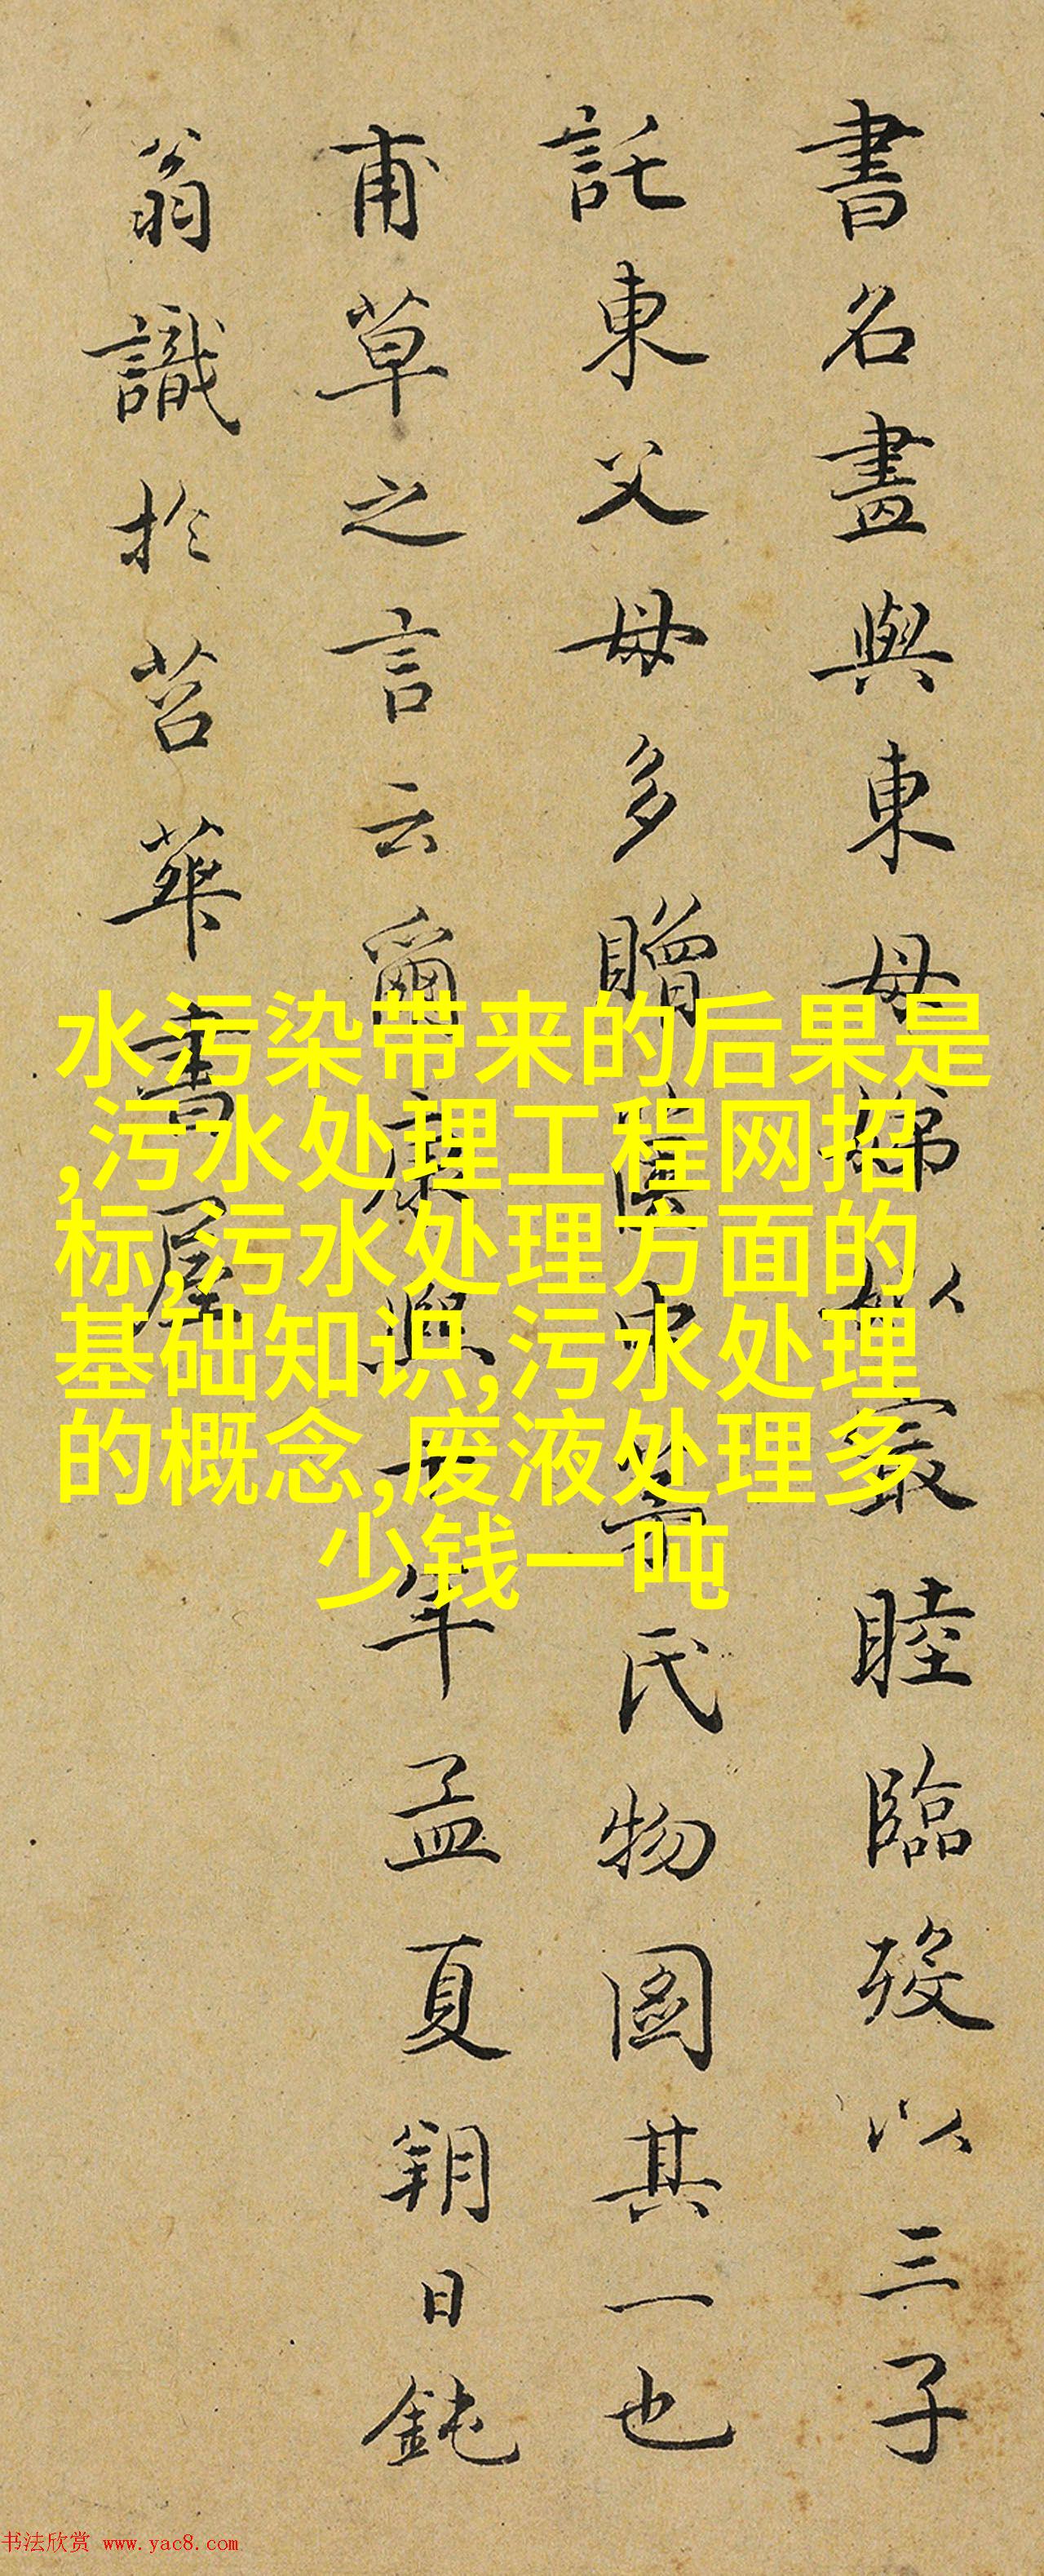 書名畫與東母娣姒最睦臨歿以三子
託東父母多贈氏物圖其一也
甫草之言云爾康熙年孟夏朔日鈍
翁識於苕華書屋
水污染带来的后果是
,污水处理工程网招
标,污水处理方面的
基础知识,污水处理
的概念,废液处理多
少钱一吨
书法欣赏 www.yac8.com